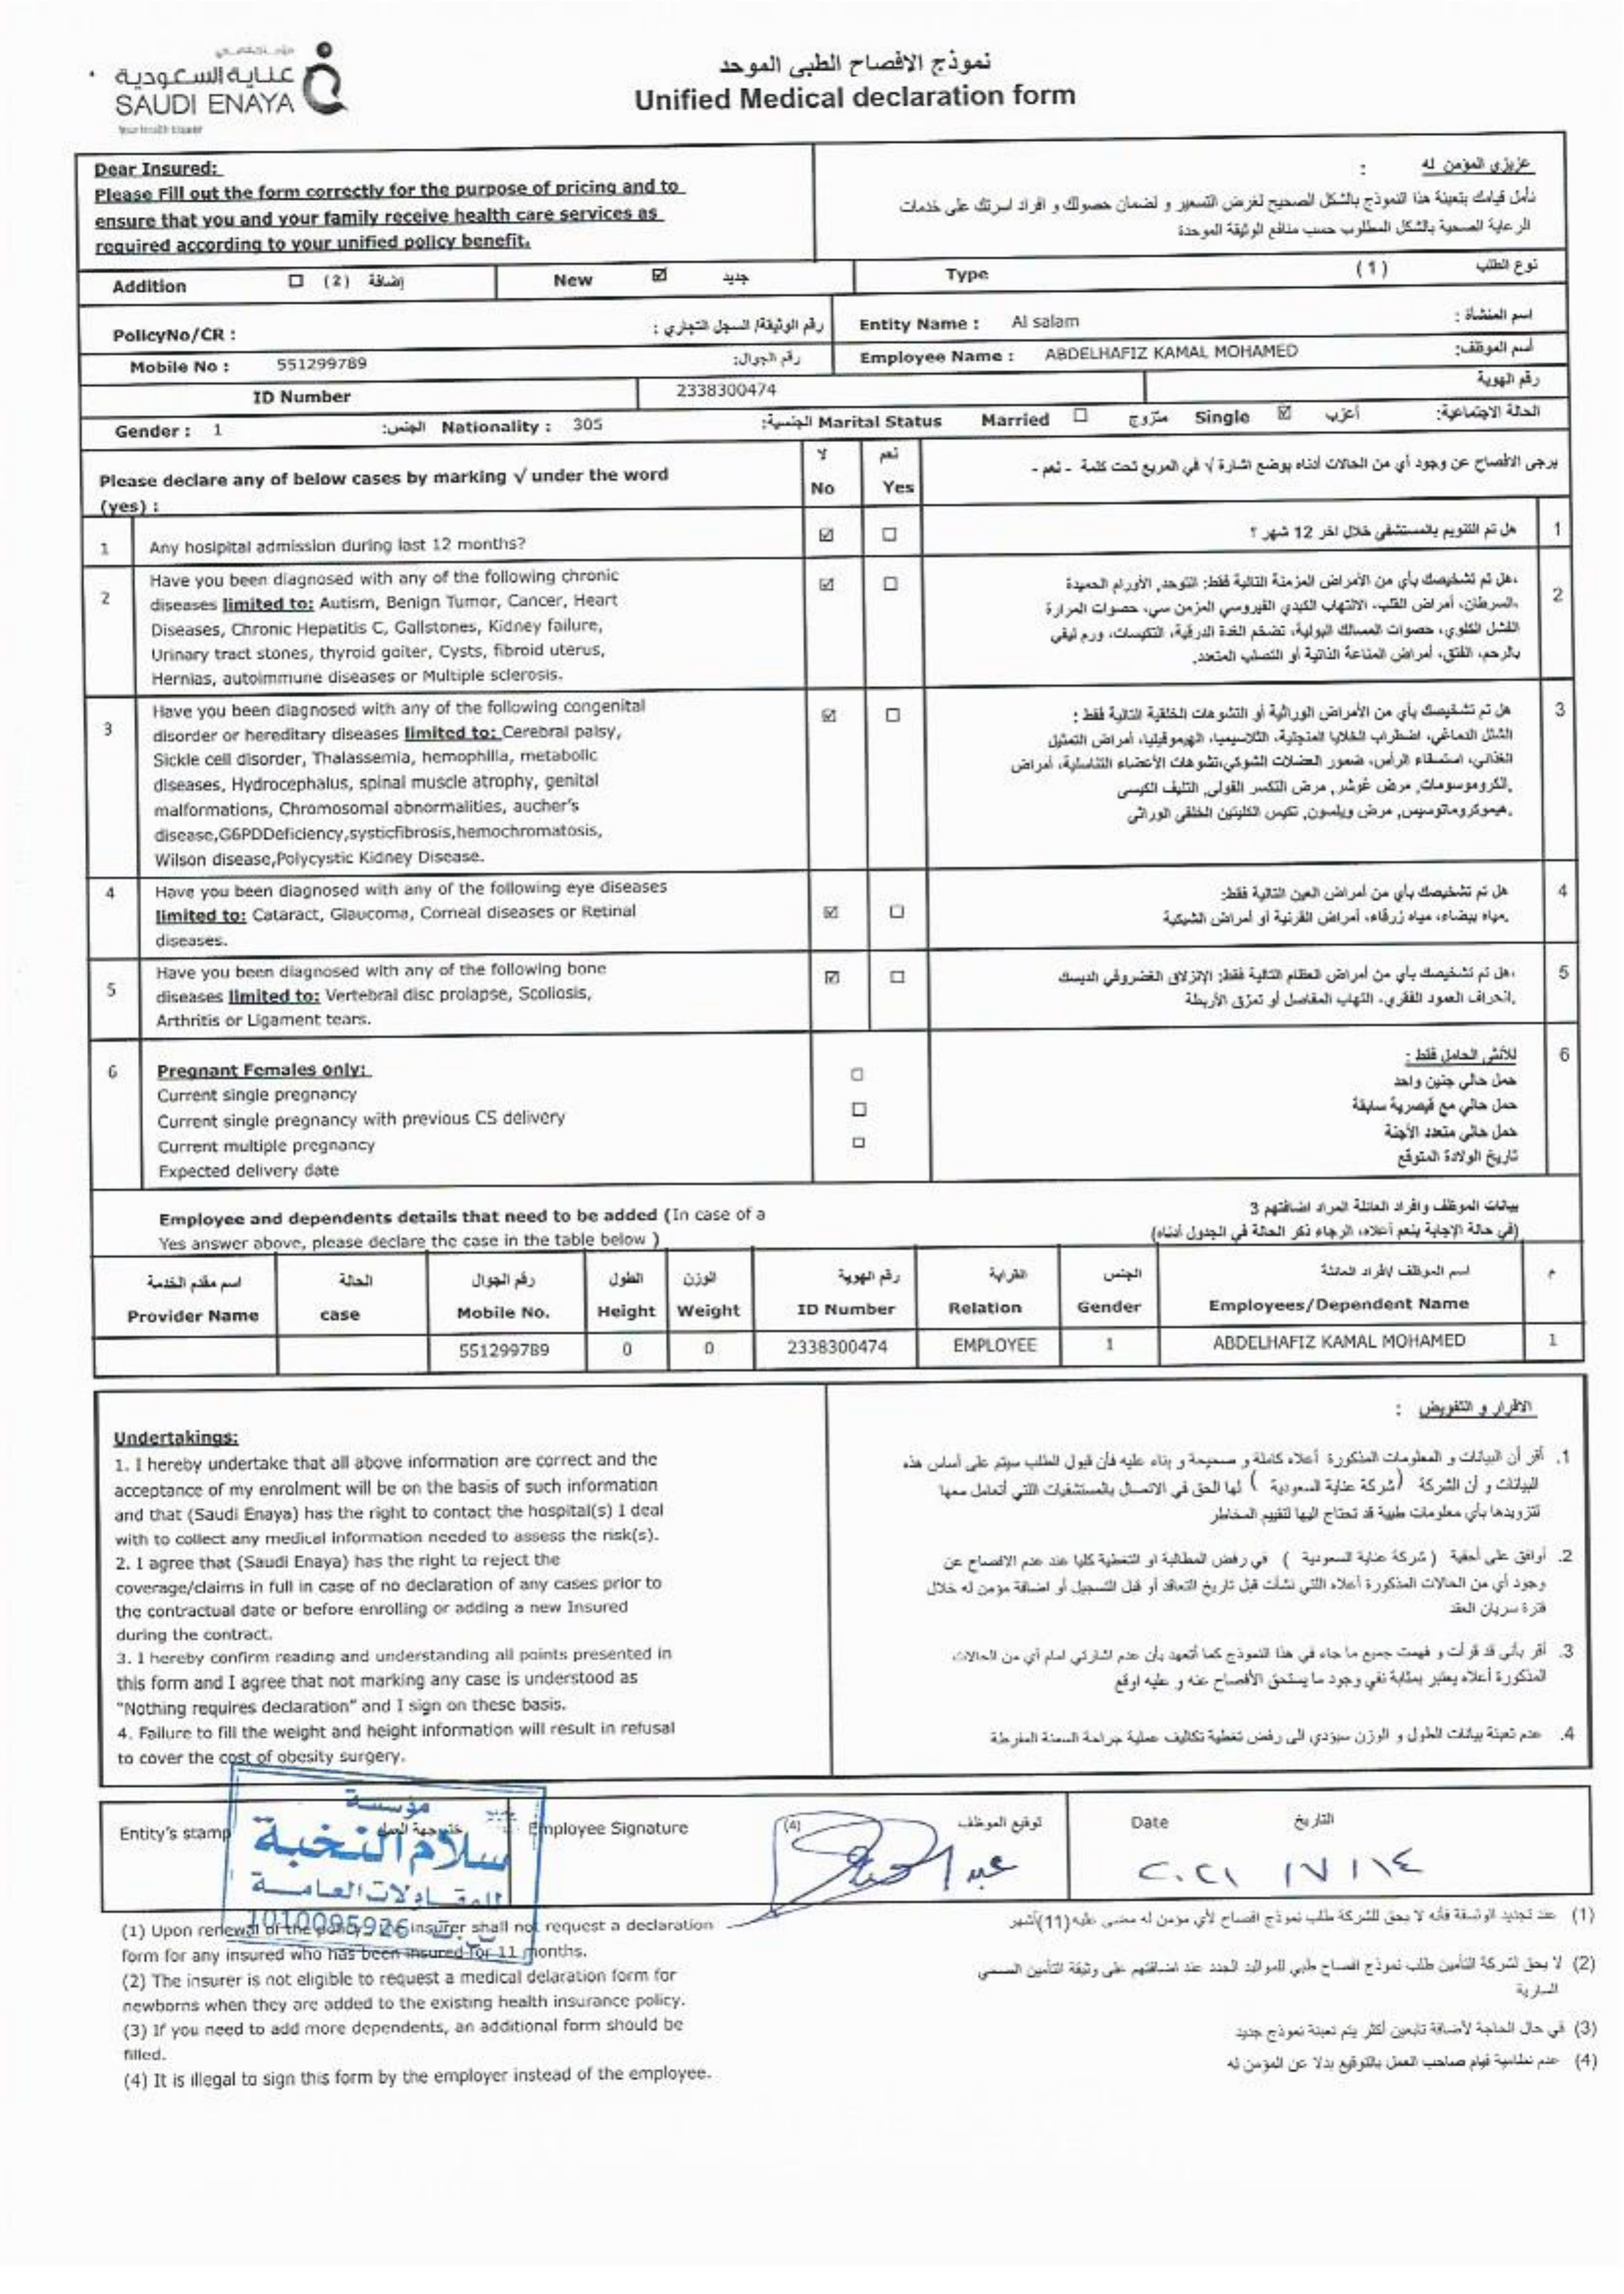 عناية السعودية
SAUDI ENAYA
نموذج الافصاح الطبى الموحد
Unified Medical declaration form
Dear Insured:
Please Fill out the form correctly for the purpose of pricing and to
ensure that you and your family receive health care services as
required according to your unified policy benefit.
عزيزي المؤمن له :
نأمل قيامك بتعبئة هذا النموذج بالشكل الصحيح لغرض التسعير و لضمان حصولك و افراد اسرتك على خدمات
الرعاية الصحية بالشكل المطلوب حسب منافع الوثيقة الموحدة
Addition ☐ (2) إضافة New ☑ جديد Type (1) نوع الطلب
PolicyNo/CR : رقم الوثيقة/ السجل التجاري : Entity Name : Al salam اسم المنشاة :
Mobile No : 551299789 رقم الجوال: Employee Name : ABDELHAFIZ KAMAL MOHAMED أسم الموظف:
ID Number 2338300474 رقم الهوية
Gender : 1 الجنس: Nationality : 305 الجنسية: Marital Status Married ☐ متزوج Single ☑ أعزب الحالة الاجتماعية:
Please declare any of below cases by marking √ under the word
(yes) :
لا نعم
No Yes
يرجى الافصاح عن وجود أي من الحالات أدناه بوضع اشارة √ في المربع تحت كلمة - نعم -
1 Any hosipital admission during last 12 months? ☑ ☐ هل تم التنويم بالمستشفى خلال اخر 12 شهر ؟ 1
2 Have you been diagnosed with any of the following chronic
diseases limited to: Autism, Benign Tumor, Cancer, Heart
Diseases, Chronic Hepatitis C, Gallstones, Kidney failure,
Urinary tract stones, thyroid goiter, Cysts, fibroid uterus,
Hernias, autoimmune diseases or Multiple sclerosis.
☑ ☐
هل تم تشخيصك بأي من الأمراض المزمنة التالية فقط: التوحد, الأورام الحميدة، 2
السرطان، أمراض القلب، الالتهاب الكبدي الفيروسي المزمن سي، حصوات المرارة،
الفشل الكلوي، حصوات المسالك البولية، تضخم الغدة الدرقية، التكيسات، ورم ليفي
بالرحم، الفتق، أمراض المناعة الذاتية أو التصلب المتعدد.
3 Have you been diagnosed with any of the following congenital
disorder or hereditary diseases limited to: Cerebral palsy,
Sickle cell disorder, Thalassemia, hemophilia, metabolic
diseases, Hydrocephalus, spinal muscle atrophy, genital
malformations, Chromosomal abnormalities, aucher's
disease,G6PDDeficiency,systicfibrosis,hemochromatosis,
Wilson disease,Polycystic Kidney Disease.
☑ ☐
هل تم تشخيصك بأي من الأمراض الوراثية أو التشوهات الخلقية التالية فقط : 3
الشلل الدماغي، اضطراب الخلايا المنجلية، الثلاسيميا، الهيموفيليا، أمراض التمثيل
الغذائي، استسقاء الرأس، ضمور العضلات الشوكي،تشوهات الأعضاء التناسلية، أمراض
الكروموسومات, مرض غوشر, مرض التكسر الفولي, التليف الكيسي,
هيموكروماتوسيس, مرض ويلسون, تكيس الكليتين الخلقي الوراثي.
4 Have you been diagnosed with any of the following eye diseases
limited to: Cataract, Glaucoma, Corneal diseases or Retinal
diseases.
☑ ☐
هل تم تشخيصك بأي من أمراض العين التالية فقط: 4
مياه بيضاء، مياه زرقاء، أمراض القرنية أو أمراض الشبكية.
5 Have you been diagnosed with any of the following bone
diseases limited to: Vertebral disc prolapse, Scoliosis,
Arthritis or Ligament tears.
☑ ☐
هل تم تشخيصك بأي من أمراض العظام التالية فقط: الإنزلاق الغضروفي الديسك، 5
انحراف العمود الفقري، التهاب المفاصل أو تمزق الأربطة.
6 Pregnant Females only: للأنثى الحامل فقط : 6
Current single pregnancy ☐ حمل حالي جنين واحد
Current single pregnancy with previous CS delivery ☐ حمل حالي مع قيصرية سابقة
Current multiple pregnancy ☐ حمل حالي متعدد الأجنة
Expected delivery date تاريخ الولادة المتوقع
Employee and dependents details that need to be added (In case of a
Yes answer above, please declare the case in the table below )
بيانات الموظف وافراد العائلة المراد اضافتهم 3
(في حالة الإجابة بنعم أعلاه، الرجاء ذكر الحالة في الجدول أدناه)
اسم مقدم الخدمة الحالة رقم الجوال الطول الوزن رقم الهوية القرابة الجنس اسم الموظف /افراد العائلة م
Provider Name case Mobile No. Height Weight ID Number Relation Gender Employees/Dependent Name
551299789 0 0 2338300474 EMPLOYEE 1 ABDELHAFIZ KAMAL MOHAMED 1
Undertakings:
1. I hereby undertake that all above information are correct and the
acceptance of my enrolment will be on the basis of such information
and that (Saudi Enaya) has the right to contact the hospital(s) I deal
with to collect any medical information needed to assess the risk(s).
2. I agree that (Saudi Enaya) has the right to reject the
coverage/claims in full in case of no declaration of any cases prior to
the contractual date or before enrolling or adding a new Insured
during the contract.
3. I hereby confirm reading and understanding all points presented in
this form and I agree that not marking any case is understood as
"Nothing requires declaration" and I sign on these basis.
4. Failure to fill the weight and height information will result in refusal
to cover the cost of obesity surgery.
الاقرار و التفويض :
1. أقر أن البيانات و المعلومات المذكورة أعلاه كاملة و صحيحة و بناء عليه فأن قبول الطلب سيتم على أساس هذه
البيانات و أن الشركة (شركة عناية السعودية ) لها الحق في الاتصال بالمستشفيات اللتي أتعامل معها
لتزويدها بأي معلومات طبية قد تحتاج اليها لتقييم المخاطر
2. أوافق على أحقية ( شركة عناية السعودية ) في رفض المطالبة او التغطية كليا عند عدم الافصاح عن
وجود أي من الحالات المذكورة أعلاه اللتي نشأت قبل تاريخ التعاقد أو قبل التسجيل أو اضافة مؤمن له خلال
فترة سريان العقد
3. أقر بأني قد قرأت و فهمت جميع ما جاء في هذا النموذج كما أتعهد بأن عدم اشارتي امام أي من الحالات
المذكورة أعلاه يعتبر بمثابة نفي وجود ما يستحق الأفصاح عنه و عليه اوقع
4. عدم تعبئة بيانات الطول و الوزن سيؤدي الى رفض تغطية تكاليف عملية جراحة السمنة المفرطة
Entity's stamp ختم جهة العمل Employee Signature (4) توقيع الموظف Date التاريخ
مؤسسة
سلام النخبة
للمقاولات العامة
1010095926
٢٠٢١ / ٧ / ١٤
(1) Upon renewal of the policy, the insurer shall not request a declaration
form for any insured who has been insured for 11 months.
(2) The insurer is not eligible to request a medical delaration form for
newborns when they are added to the existing health insurance policy.
(3) If you need to add more dependents, an additional form should be
filled.
(4) It is illegal to sign this form by the employer instead of the employee.
(1) عند تجديد الوثيقة فأنه لا يحق للشركة طلب نموذج افصاح لأي مؤمن له مضى عليه (11)أشهر
(2) لا يحق لشركة التأمين طلب نموذج افصاح طبي للمواليد الجدد عند اضافتهم على وثيقة التأمين الصحي
السارية
(3) في حال الحاجة لأضافة تابعين أكثر يتم تعبئة نموذج جديد
(4) عدم نظامية قيام صاحب العمل بالتوقيع بدلا عن المؤمن له